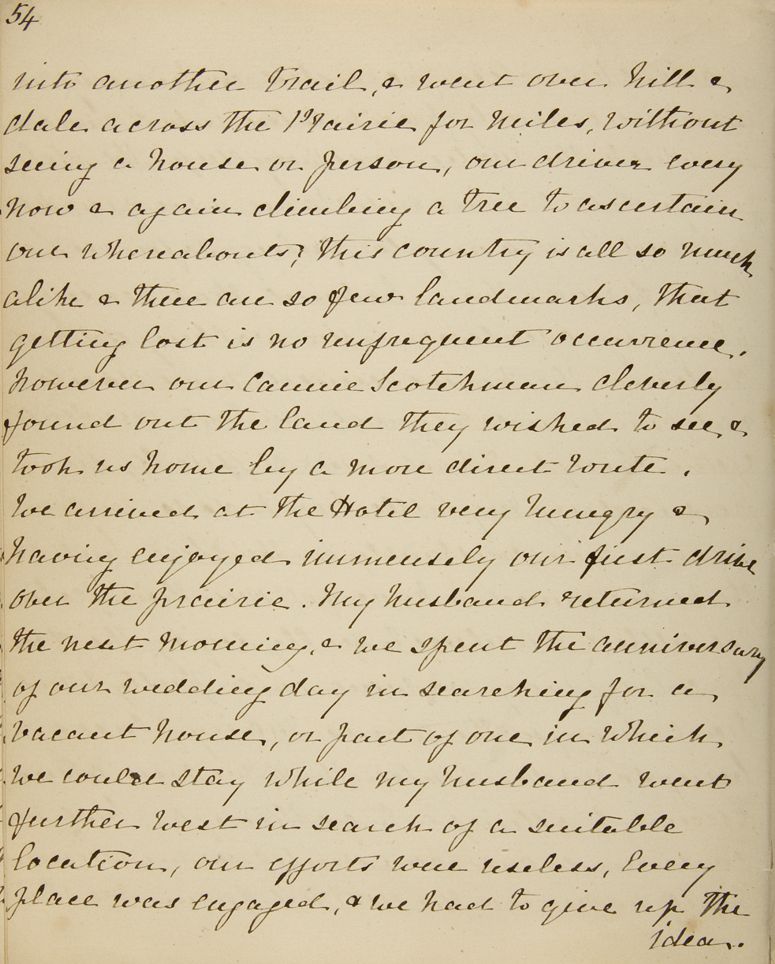 54
into another trail, & went over hill &
dale across the Prairie for miles, without
seeing a house or person, our driver every
now & again climbing a tree to ascertain
our whereabouts; this country is all so much
alike & there are so few landmarks, that
getting lost is no unfrequent occurrence.
However our Cannie Scotchman cleverly
found out the land they wished to see, &
took us home by a more direct route.
We arrived at the Hotel very hungry &
having enjoyed immensely our first drive
over the prairie. My husband returned
the next morning, & we spent the anniversary
of our wedding day in searching for a
vacant house, or part of one in which
we could stay while my husband went
further west in search of a suitable
location, our efforts were useless, Every
place was engaged, & we had to give up the
idea.